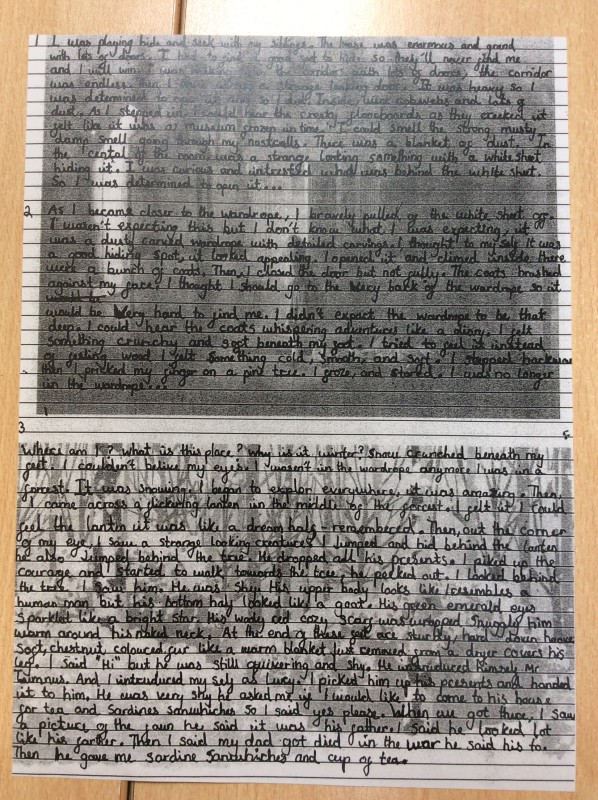 1 I was playing hide and seek with my siblings. The house was enormous and grand
with lots of doors. I had to find a good spot to hide. so they'll never find me
and I will win. I was the corridor with lots of doors, the corridor
was endless, then I strange looking door. It was heavy so I
was determined to open it and so I did. Inside were cobwebs and lots of
dust. As I stepped in I could hear the crusty floorboards as they creeked it
felt like it was a museum frozen in time. I could smell the strong, musty
damp smell going through my nostralls. There was a blanket of dust. In
the cental of the room was a strange looking something with a white sheet
hiding it. I was curious and intrested what was behind the white sheet.
So I was determined to open it...
2. As I became closer to the wardrope, I bravely pulled of the white sheet off.
I waren't expecting this but I don't know what I was expecting, it
was a dusty carved wardrope with detailed carvings. I thought to my self It was
a good hiding spot, it looked appealing. I opened it and climed inside there
were a bunch of coats. Then, I closed the door but not fully. The coats brushed
against my face. I thought I should go to the Very back of the wardrope so it
would be
would be Very hard to find me. I didn't expect the wardrope to be that
deep. I could hear the coats whispering adventures like a diary. I felt
something crunchy and soft beneath my foot. I tried to feel it instead
of feeling wood I felt something cold, smooth, and soft. I stepped backwards
then I pricked my finger on a pine tree. I froze, and stared. I was no longer
in the wardrope...
3.
Where am I? what is this place? why is it winter? Snow crunched beneath my
feet. I couldn't belive my eyes. I wasen't in the wardrope anymore I was in a
forrest. It was snowing. I began to explor everywhere, it was amazing. Then,
I came across a flickering lanten in the middle of the forcest. I felt it I could
feel the lantin it was like a dream half-rememberced. Then, out the corner
of my eye, I saw a strange looking creatures I jumped and hid behind the lanten
he also Jumped behind the tree. He dropped all his presents. I piked up the
courage and I started to walk towards the tree, he peeked out. I looked behind
the tree, I saw him. He was shy. His upper body looks like/resembles a
human man but his bottom half looked like a goat. His green emerald eyes
sparkled like a bright star. His wooly red cozy scarf was wrapped snuggly him
warm around his naked neck. At the end of these feet are sturdy, hard, down hooves
Soft, chestnut coloured fur like a warm blanket just removed from a dryer covers his
leg. I said "Hi" but he was still quivering and shy. He intruduced himself Mr
Tumnus. And I intruduced my self as Lucy. I picked him up his presents and handed
it to him. He was very shy he asked me if I would like to come to his house
for tea and Sardines sanwhiches So I said yes please. When we got there, I saw
a picture of the faun he said it was his father. I said he looked lot
like his farther. Then I said my dad got died in the war he said his to.
Then he gave me sardine sandwhiches and cup of tea.